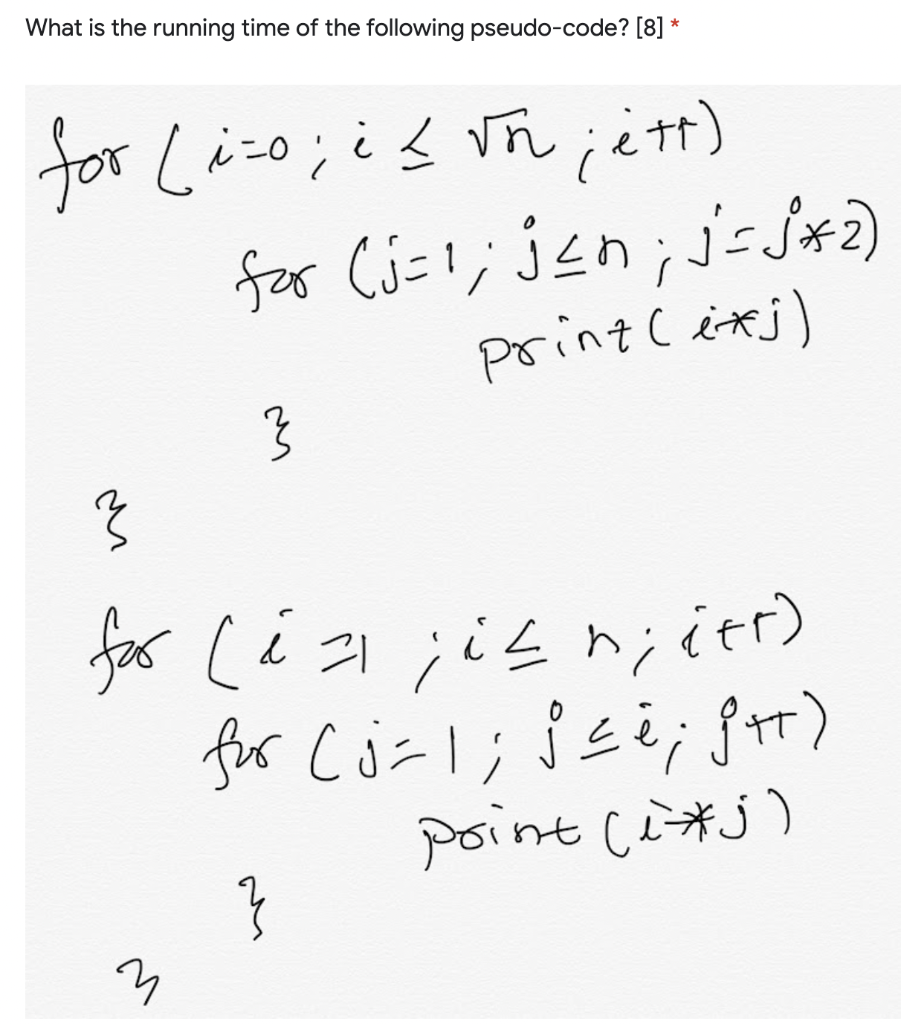 What is the running time of the following pseudo-code? [8] *
for (i=0; i ≤ √n; i++)
for (j=1; j≤n; j=j*2)
print(i*j)
}
}
for (i=1; i≤n; i++)
for (j=1; j≤i; j++)
print(i*j)
}
}